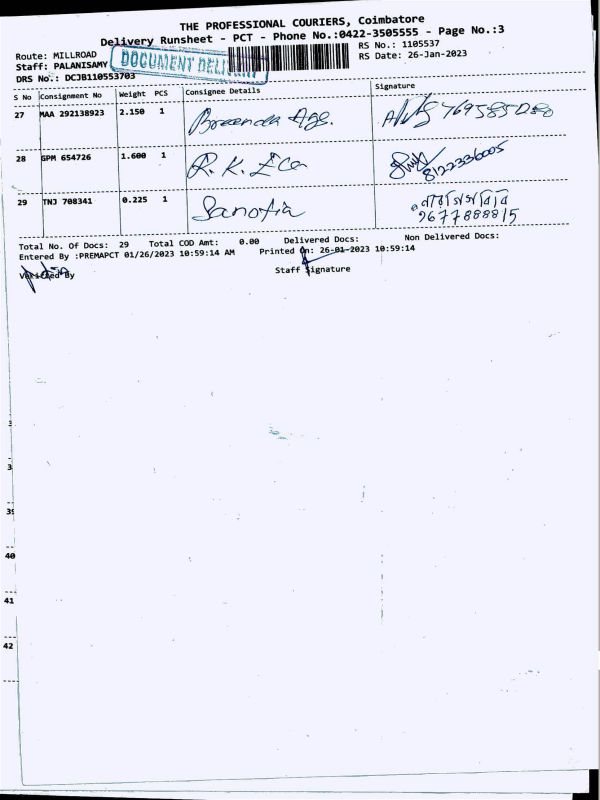 THE PROFESSIONAL COURIERS, Coimbatore
Delivery Runsheet - PCT - Phone No.:0422-3505555 - Page No.:3
Route: MILLROAD
Staff: PALANISAMY
DOCUMENT
RS No.: 1105537
RS Date: 26-Jan-2023
DRS No.: DCJB110553703
S No Consignment No Weight PCS Consignee Details Signature
27 MAA 292138923 2.150 1
28 GPM 654726 1.600 1 R. K.
8122336005
29 TNJ 708341 0.225 1
9677888815
Total No. Of Docs: 29 Total COD Amt: 0.00 Delivered Docs: Non Delivered Docs:
Entered By :PREMAPCT 01/26/2023 10:59:14 AM Printed On: 26-01-2023 10:59:14
Verified By Staff Signature
40
41
42